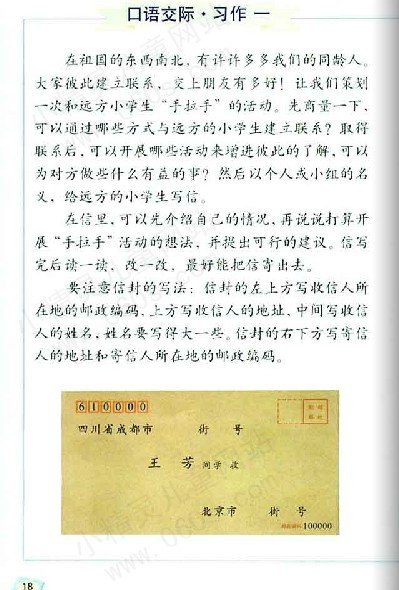 口语交际·习作一
在祖国的东西南北，有许许多多我们的同龄人。
大家彼此建立联系，交上朋友有多好！让我们策划
一次和远方小学生“手拉手”的活动。先商量一下，
可以通过哪些方式与远方的小学生建立联系？取得
联系后，可以开展哪些活动来增进彼此的了解，可以
为对方做些什么有益的事？然后以个人或小组的名
义，给远方的小学生写信。
在信里，可以先介绍自己的情况，再说说打算开
展“手拉手”活动的想法，并提出可行的建议。信写
完后读一读，改一改，最好能把信寄出去。
要注意信封的写法：信封的左上方写收信人所
在地的邮政编码，上方写收信人的地址，中间写收信
人的姓名，姓名要写得大一些。信封的右下方写寄信
人的地址和寄信人所在地的邮政编码。
610000
四川省成都市 街 号
王 芳 同学 收
北京市 街 号
邮政编码 100000
18